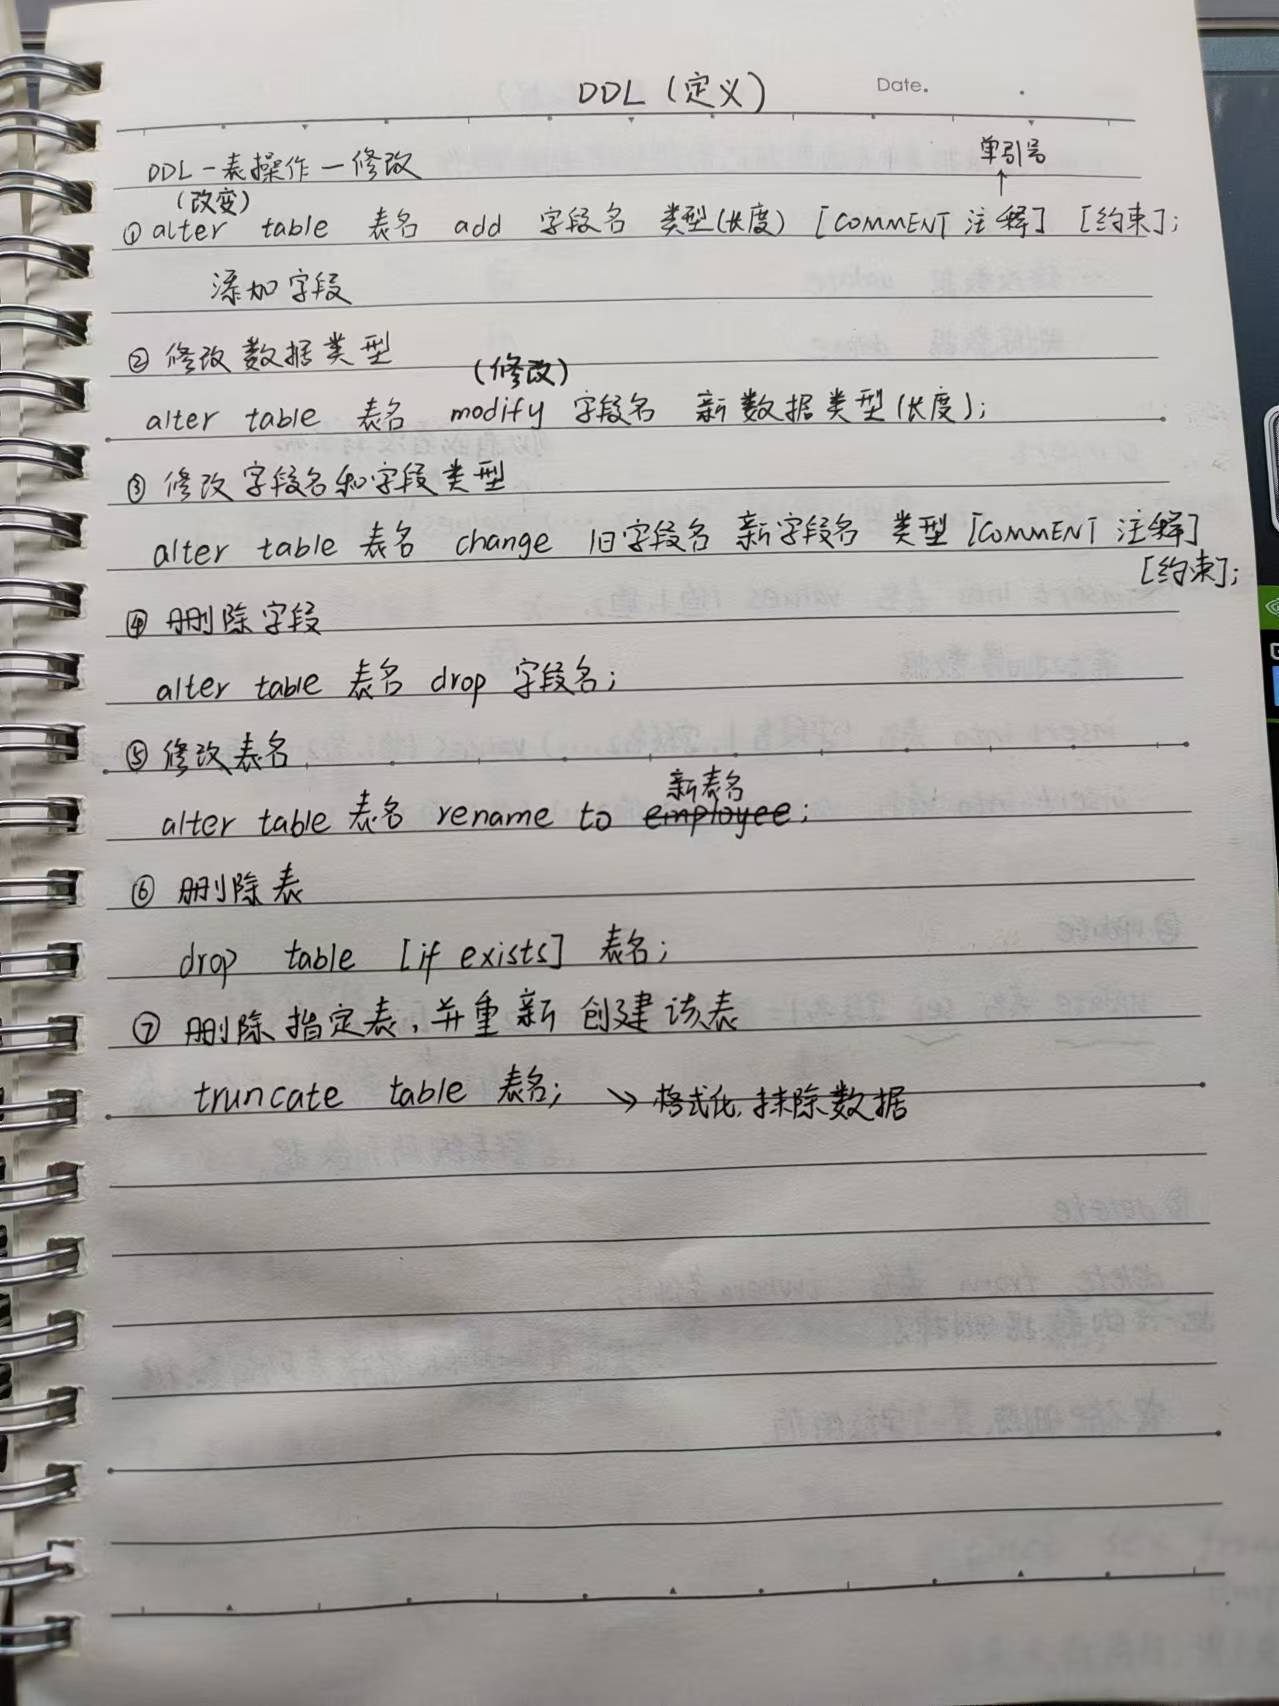 DDL (定义)
Date.
DDL - 表操作 - 修改
单引号
↑
(改变)
① alter table 表名 add 字段名 类型(长度) [COMMENT 注释] [约束];
添加字段
② 修改数据类型
(修改)
alter table 表名 modify 字段名 新数据类型(长度);
③ 修改字段名和字段类型
alter table 表名 change 旧字段名 新字段名 类型 [COMMENT 注释]
[约束];
④ 删除字段
alter table 表名 drop 字段名;
⑤ 修改表名
新表名
alter table 表名 rename to employee;
⑥ 删除表
drop table [if exists] 表名;
⑦ 删除指定表,并重新创建该表
truncate table 表名; → 格式化,抹除数据